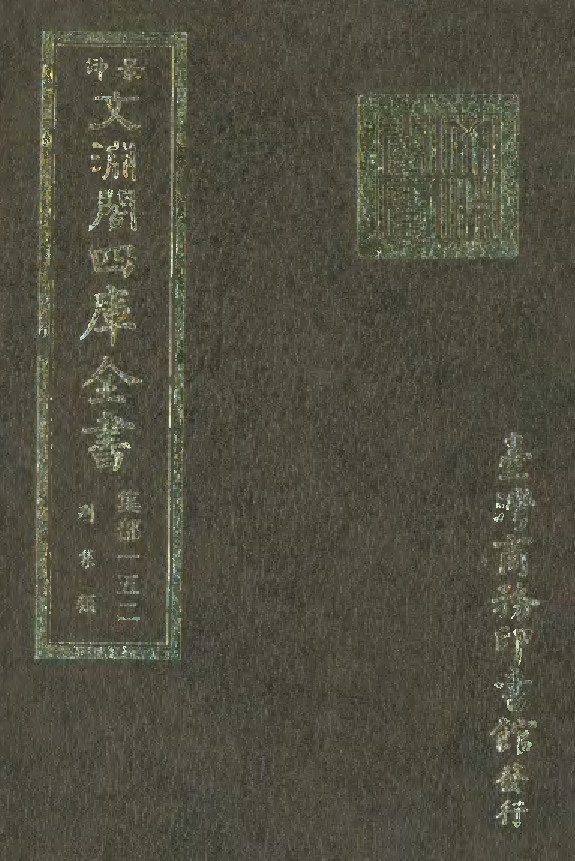 景印
文淵閣四庫全書
集部一五二
別集類
臺灣商務印書館發行